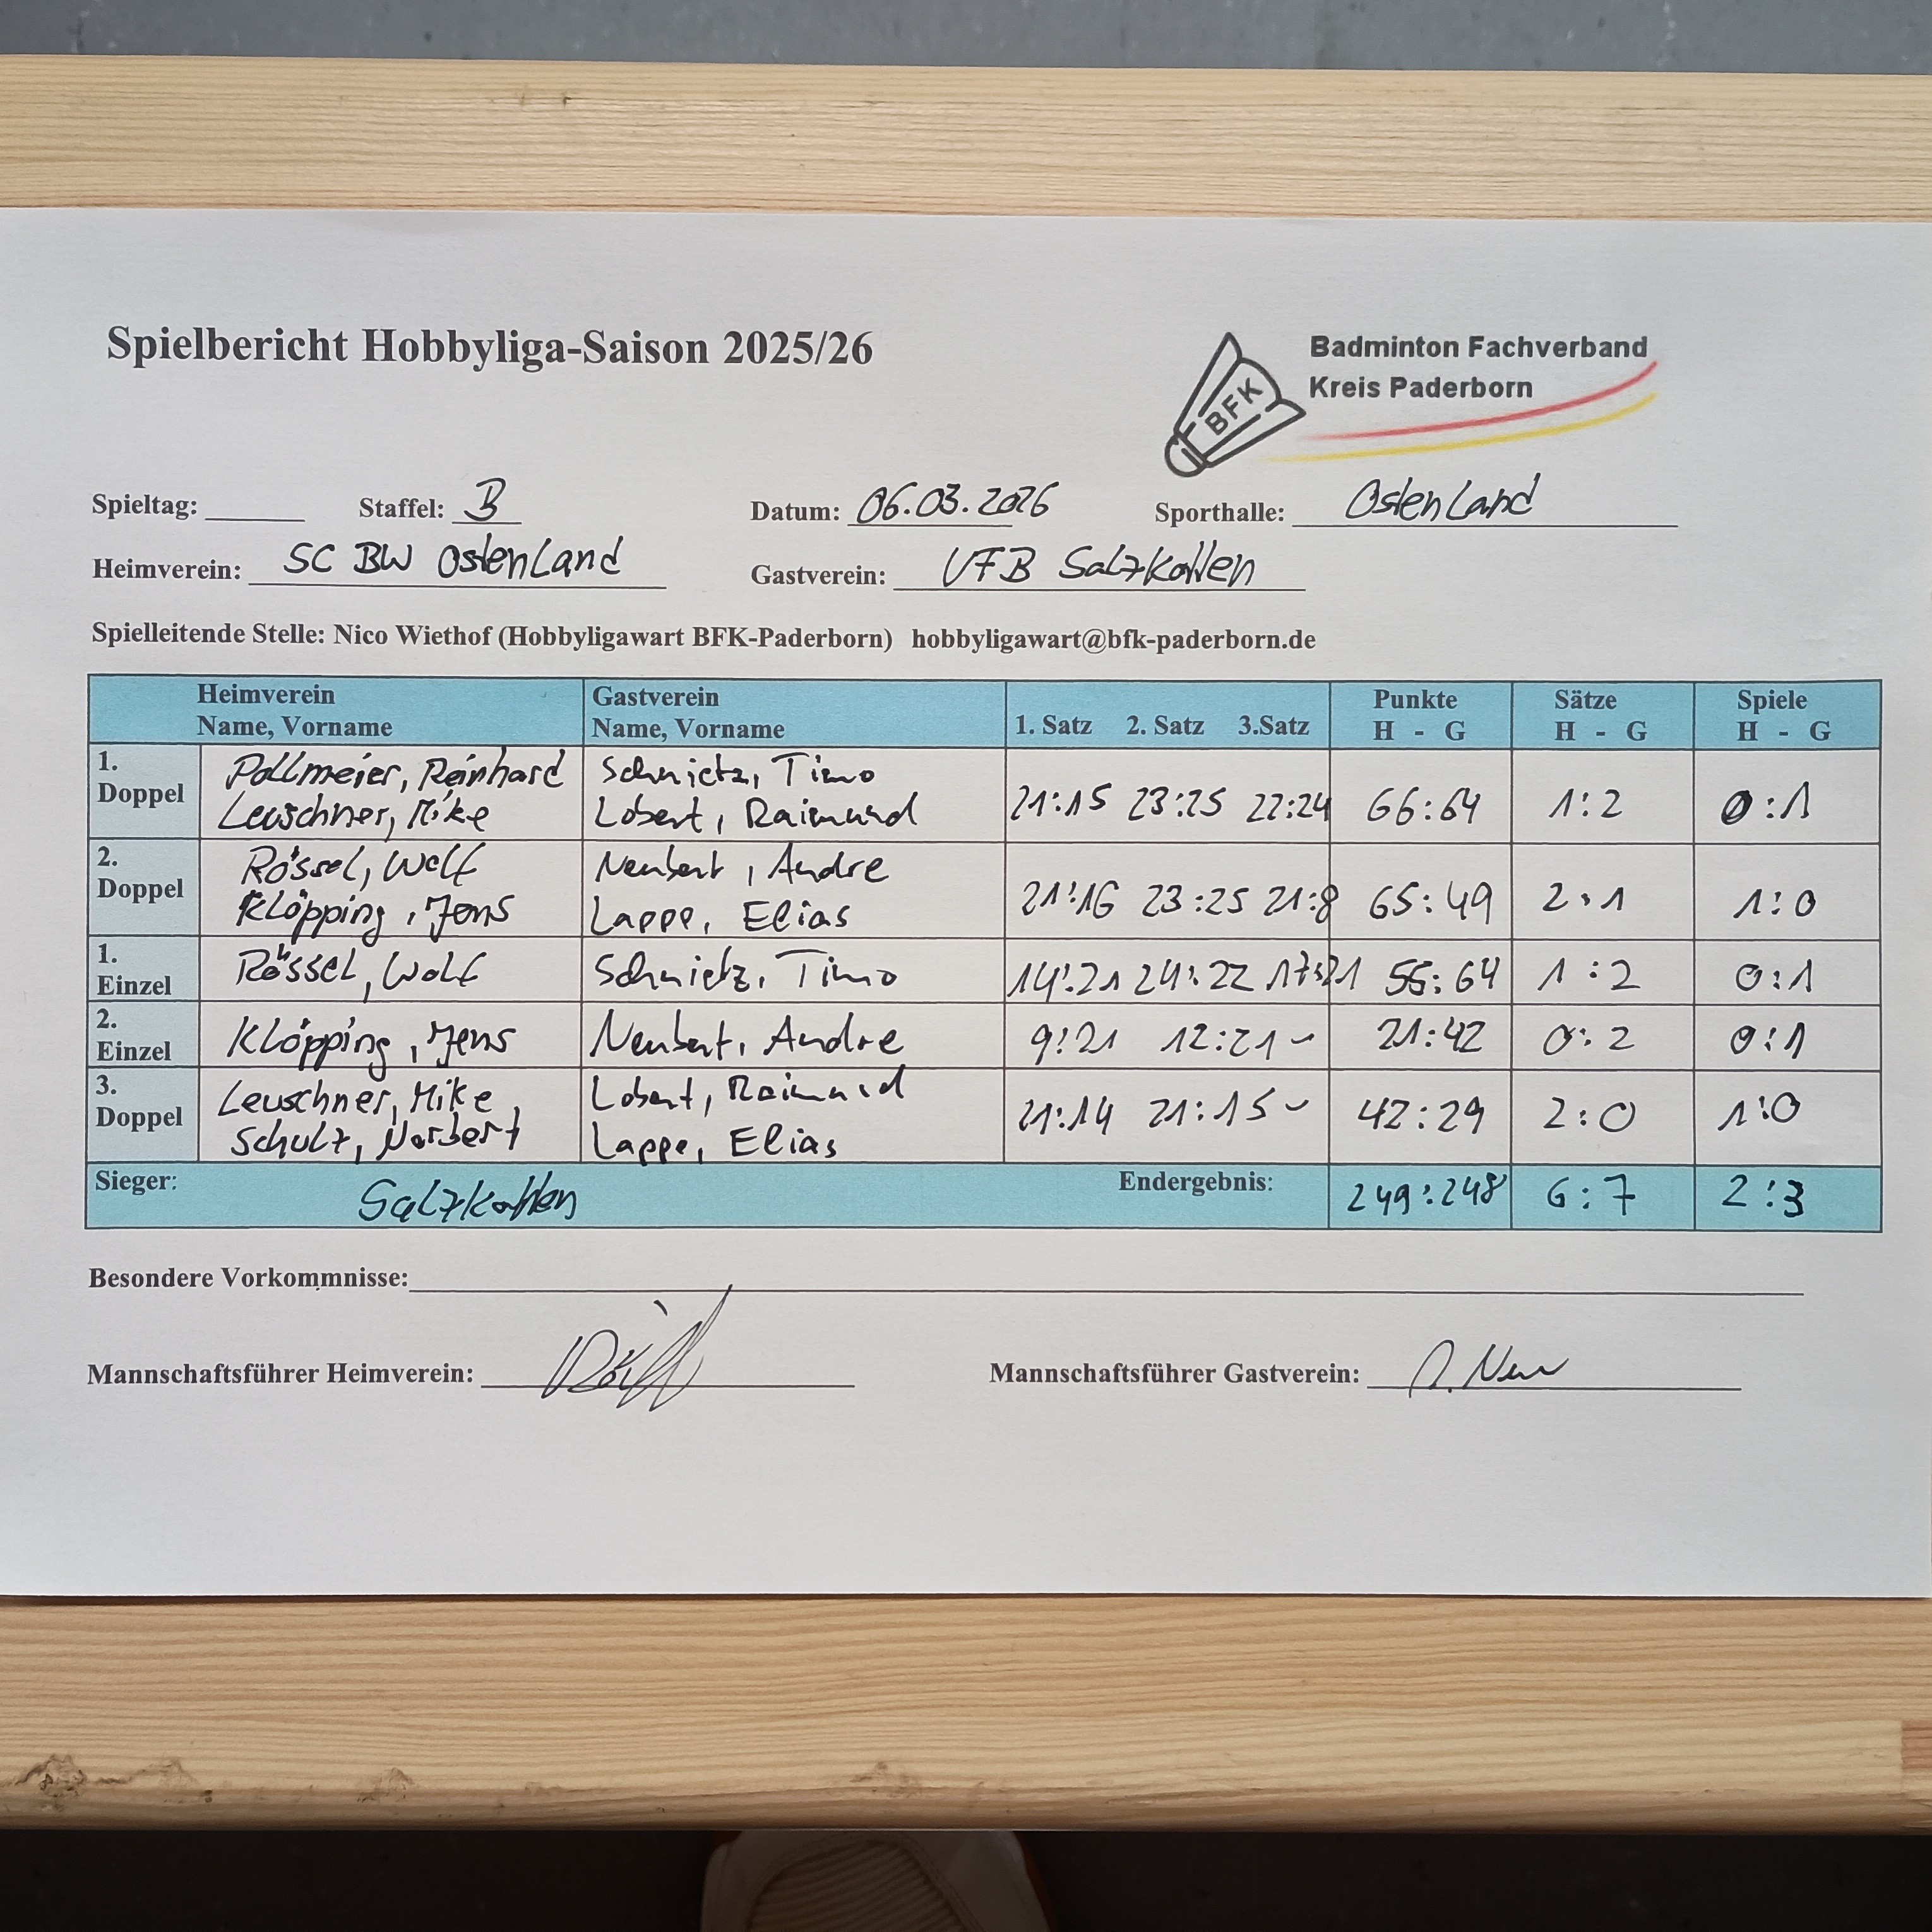 Spielbericht Hobbyliga-Saison 2025/26
Badminton Fachverband
Kreis Paderborn
BFK
Spieltag: Staffel: B Datum: 06.03.2026 Sporthalle: Ostenland
Heimverein: SC BW Ostenland Gastverein: VFB Salzkotten
Spielleitende Stelle: Nico Wiethof (Hobbyligawart BFK-Paderborn) hobbyligawart@bfk-paderborn.de
Heimverein Gastverein Punkte Sätze Spiele
Name, Vorname Name, Vorname 1. Satz 2. Satz 3.Satz H - G H - G H - G
1. Pollmeier, Reinhard Schnietz, Timo
Doppel Leuschner, Mike Lobert, Raimund 21:15 23:25 22:24 66:64 1:2 0:1
2. Rössel, Wolf Neubert, Andre
Doppel Klöpping, Jens Lappe, Elias 21:16 23:25 21:8 65:49 2:1 1:0
1. Rössel, Wolf Schnietz, Timo 14:21 24:22 17:21 55:64 1:2 0:1
Einzel
2. Klöpping, Jens Neubert, Andre 9:21 12:21 - 21:42 0:2 0:1
Einzel
3. Leuschner, Mike Lobert, Raimund
Doppel Schulz, Norbert Lappe, Elias 21:14 21:15 - 42:29 2:0 1:0
Sieger: Salzkotten Endergebnis: 249:248 6:7 2:3
Besondere Vorkommnisse:
Mannschaftsführer Heimverein: Mannschaftsführer Gastverein: